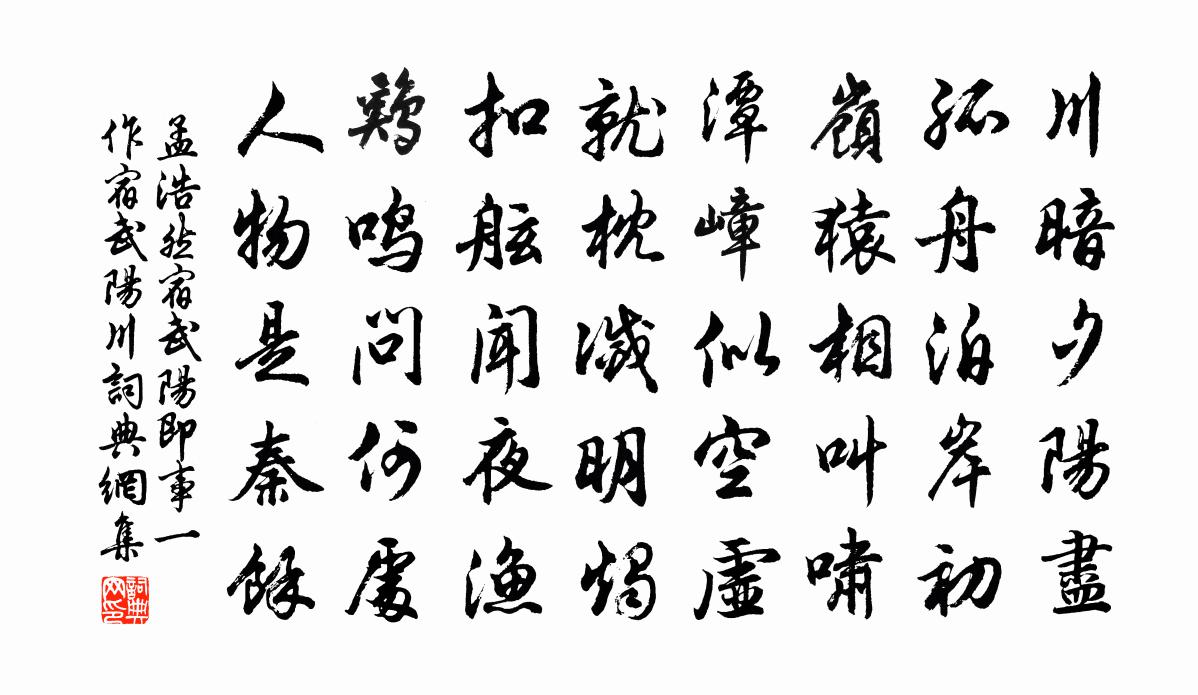 川暗夕陽盡
孤舟泊岸初
嶺猿相叫嘯
潭嶂似空虛
就枕滅明燭
扣舷聞夜漁
鷄鳴問何處
人物是秦餘
孟浩然宿武陽即事一
作宿武陽川詞典網集